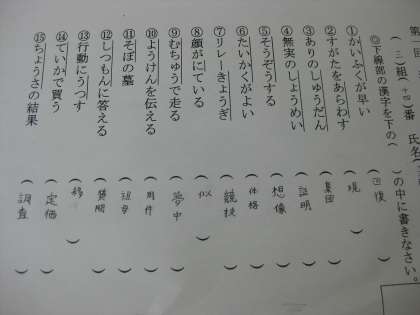 第一回
(三)組(十四)番 氏名
◎下線部の漢字を下の( )の中に書きなさい。
①かいふくが早い (回復)
②すがたをあらわす (現)
③ありのしゅうだん (集団)
④無実のしょうめい (証明)
⑤そうぞうする (想像)
⑥たいかくがよい (体格)
⑦リレーきょうぎ (競技)
⑧顔がにている (似)
⑨むちゅうで走る (夢中)
⑩ようけんを伝える (用件)
⑪そぼの墓 (祖母)
⑫しつもんに答える (質問)
⑬行動にうつす (移)
⑭ていかで買う (定価)
⑮ちょうさの結果 (調査)